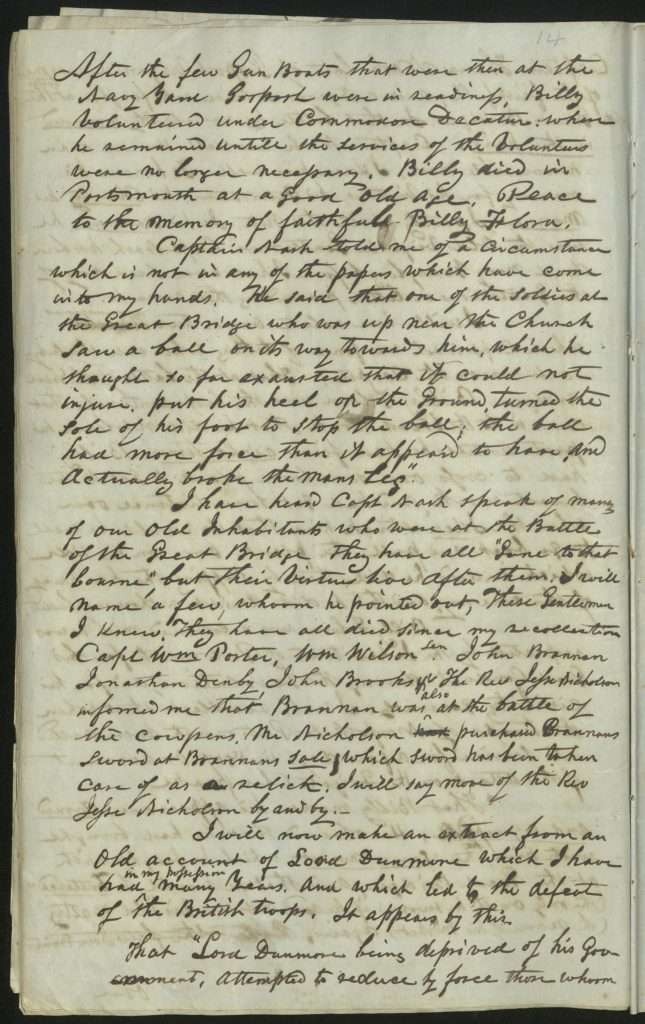 14
After the few Gun Boats that were then at the
Navy Yard Gosport were in readiness, Billy
Volunteered under Commodore Decatur. where
he remained untill the services of the Volunteers
were no longer necessary. Billy died in
Portsmouth at a Good Old Age. Peace
to the memory of faithfull Billy Flora.
Captain Nash told me of a Circumstance
which is not in any of the papers which have come
into my hands. He said that one of the Soldiers at
the Great Bridge who was up near the Church
saw a ball on its way towards him, which he
thought so far exausted that it could not
injure. put his heel on the Ground, turned the
Sole of his foot to stop the ball; the ball
had more force than it appeard to have, and
Actually broke the mans Leg".
I have heard Capt Nash speak of many
of our Old Inhabitants who were at the Battle
of the Great Bridge They have all "Gone to that
bourne," but their Virtues live after them. I will
name a few, whoom he pointed out, These Gentlemen
I knew. They have all died since my recollection
Capt Wm Porter, Wm Wilson Sen. John Brannan
Jonathan Denby, John Brooks, The Rev Jesse Nicholson
informed me that Brannan was also at the battle of
the cowpens. Mr Nicholson purchased Brannans
Sword at Brannans Sale, which sword has been taken
care of as a relick. I will say more of the Rev
Jesse Nicholson by and by.—
I will now make an extract from an
Old account of Lord Dunmore which I have
had in my possession many Years. And which led to the defeat
of the British troops. It appears by this
That "Lord Dunmore being deprived of his Gov-
ernment, attempted to reduce by force those whoom